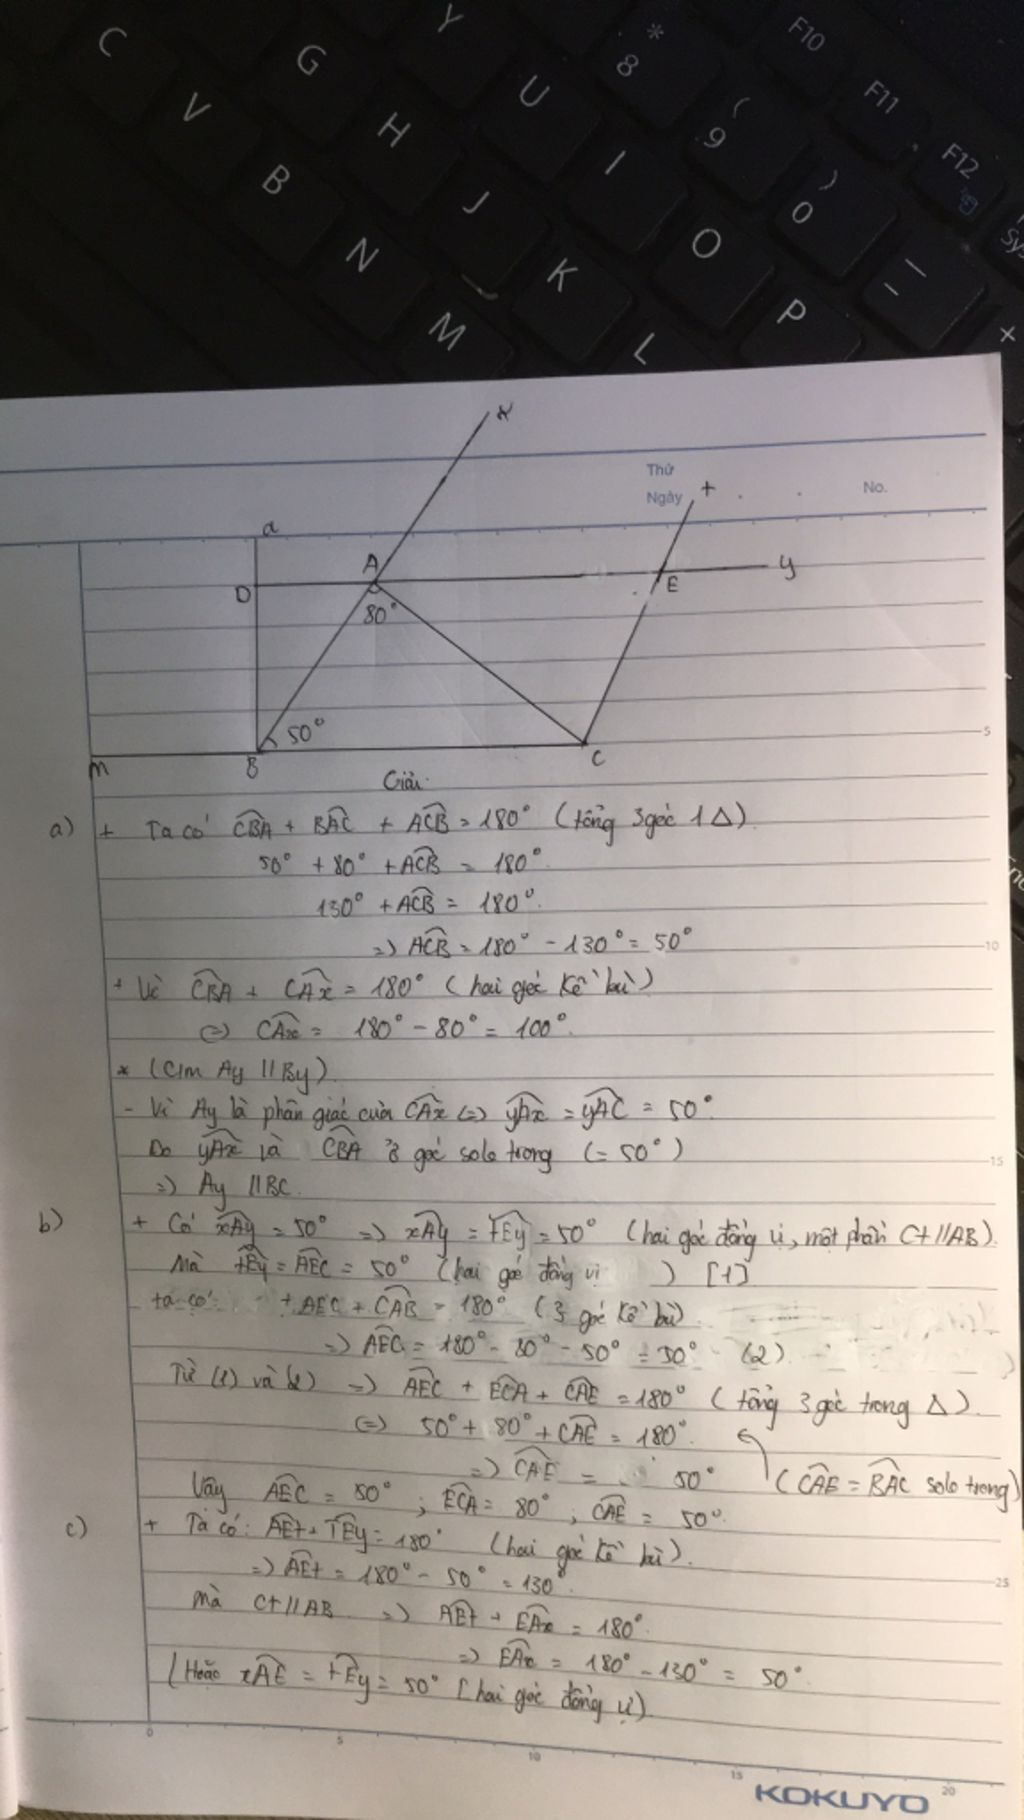 C
G
Y
*
8
F10
V
H
U
(
9
F11
B
J
I
)
0
F12
Sy
N
K
O
M
L
P
+
x
Thứ
Ngày
t
No.
d
D
A
80°
E
y
50°
m
B
C
Giải
5
a) + Ta có CBA + BAC + ACB = 180° (tổng 3 góc 1 Δ)
50° + 80° + ACB = 180°
130° + ACB = 180°.
=> ACB = 180° - 130° = 50°
10
+ Vì CBA + CAx = 180° (hai góc kề bù)
<=> CAx = 180° - 80° = 100°.
* (C/m Ay // By)
- Vì Ay là phân giác của CAx <=> yAx = yAC = 50°.
Do yAx là CBA ở góc sole trong (= 50°)
15
=> Ay // BC.
b) + Có xAy = 50° => xAy = tEy = 50° (hai góc đồng vị, một phần Ct // AB)
Mà tEy = AEC = 50° (hai góc đồng vị ) [1]
ta có: + AEC + CAB = 180° (3 góc kề bù)
=> AEC = 180° - 80° - 50° = 50° (2)
Từ (1) và (2) => AEC + ECA + CAE = 180° (tổng 3 góc trong Δ).
<=> 50° + 80° + CAE = 180°.
=> CAE = 50° (CAE = BAC sole trong)
Vậy AEC = 50° ; ECA = 80° ; CAE = 50°.
c) + Ta có: AEt + TEy = 180° (hai góc kề bù).
=> AEt = 180° - 50° = 130°
25
mà Ct // AB => AEt + EAx = 180°
=> EAx = 180° - 130° = 50°.
(Hoặc xAE = tEy = 50° (hai góc đồng vị)
0
5
10
15
20
KOKUYO